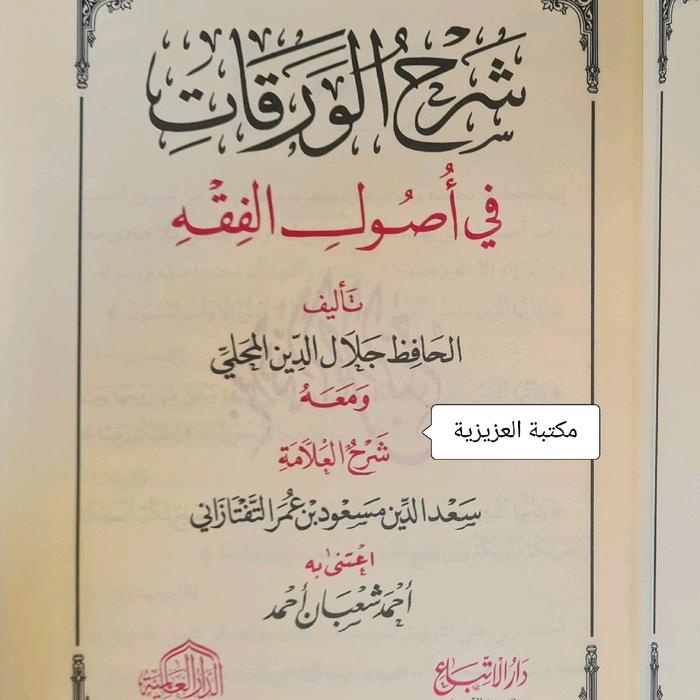 شَرْحُ الوَرَقَاتِ
في أُصُولِ الفِقْهِ
تَأليف
الحَافِظ جَلَال الدِّين المَحَلِّيّ
وَمَعَهُ
مكتبة العزيزية
شَرْحُ العَلَّامَةِ
سَعْد الدِّين مَسْعُود بن عُمَر التَّفْتَازَاني
اعْتَنى بِه
أَحْمَد شَعْبَان أَحْمَد
دَارُ الاتِّبَاع
الدَّار العَالَمِيَّة